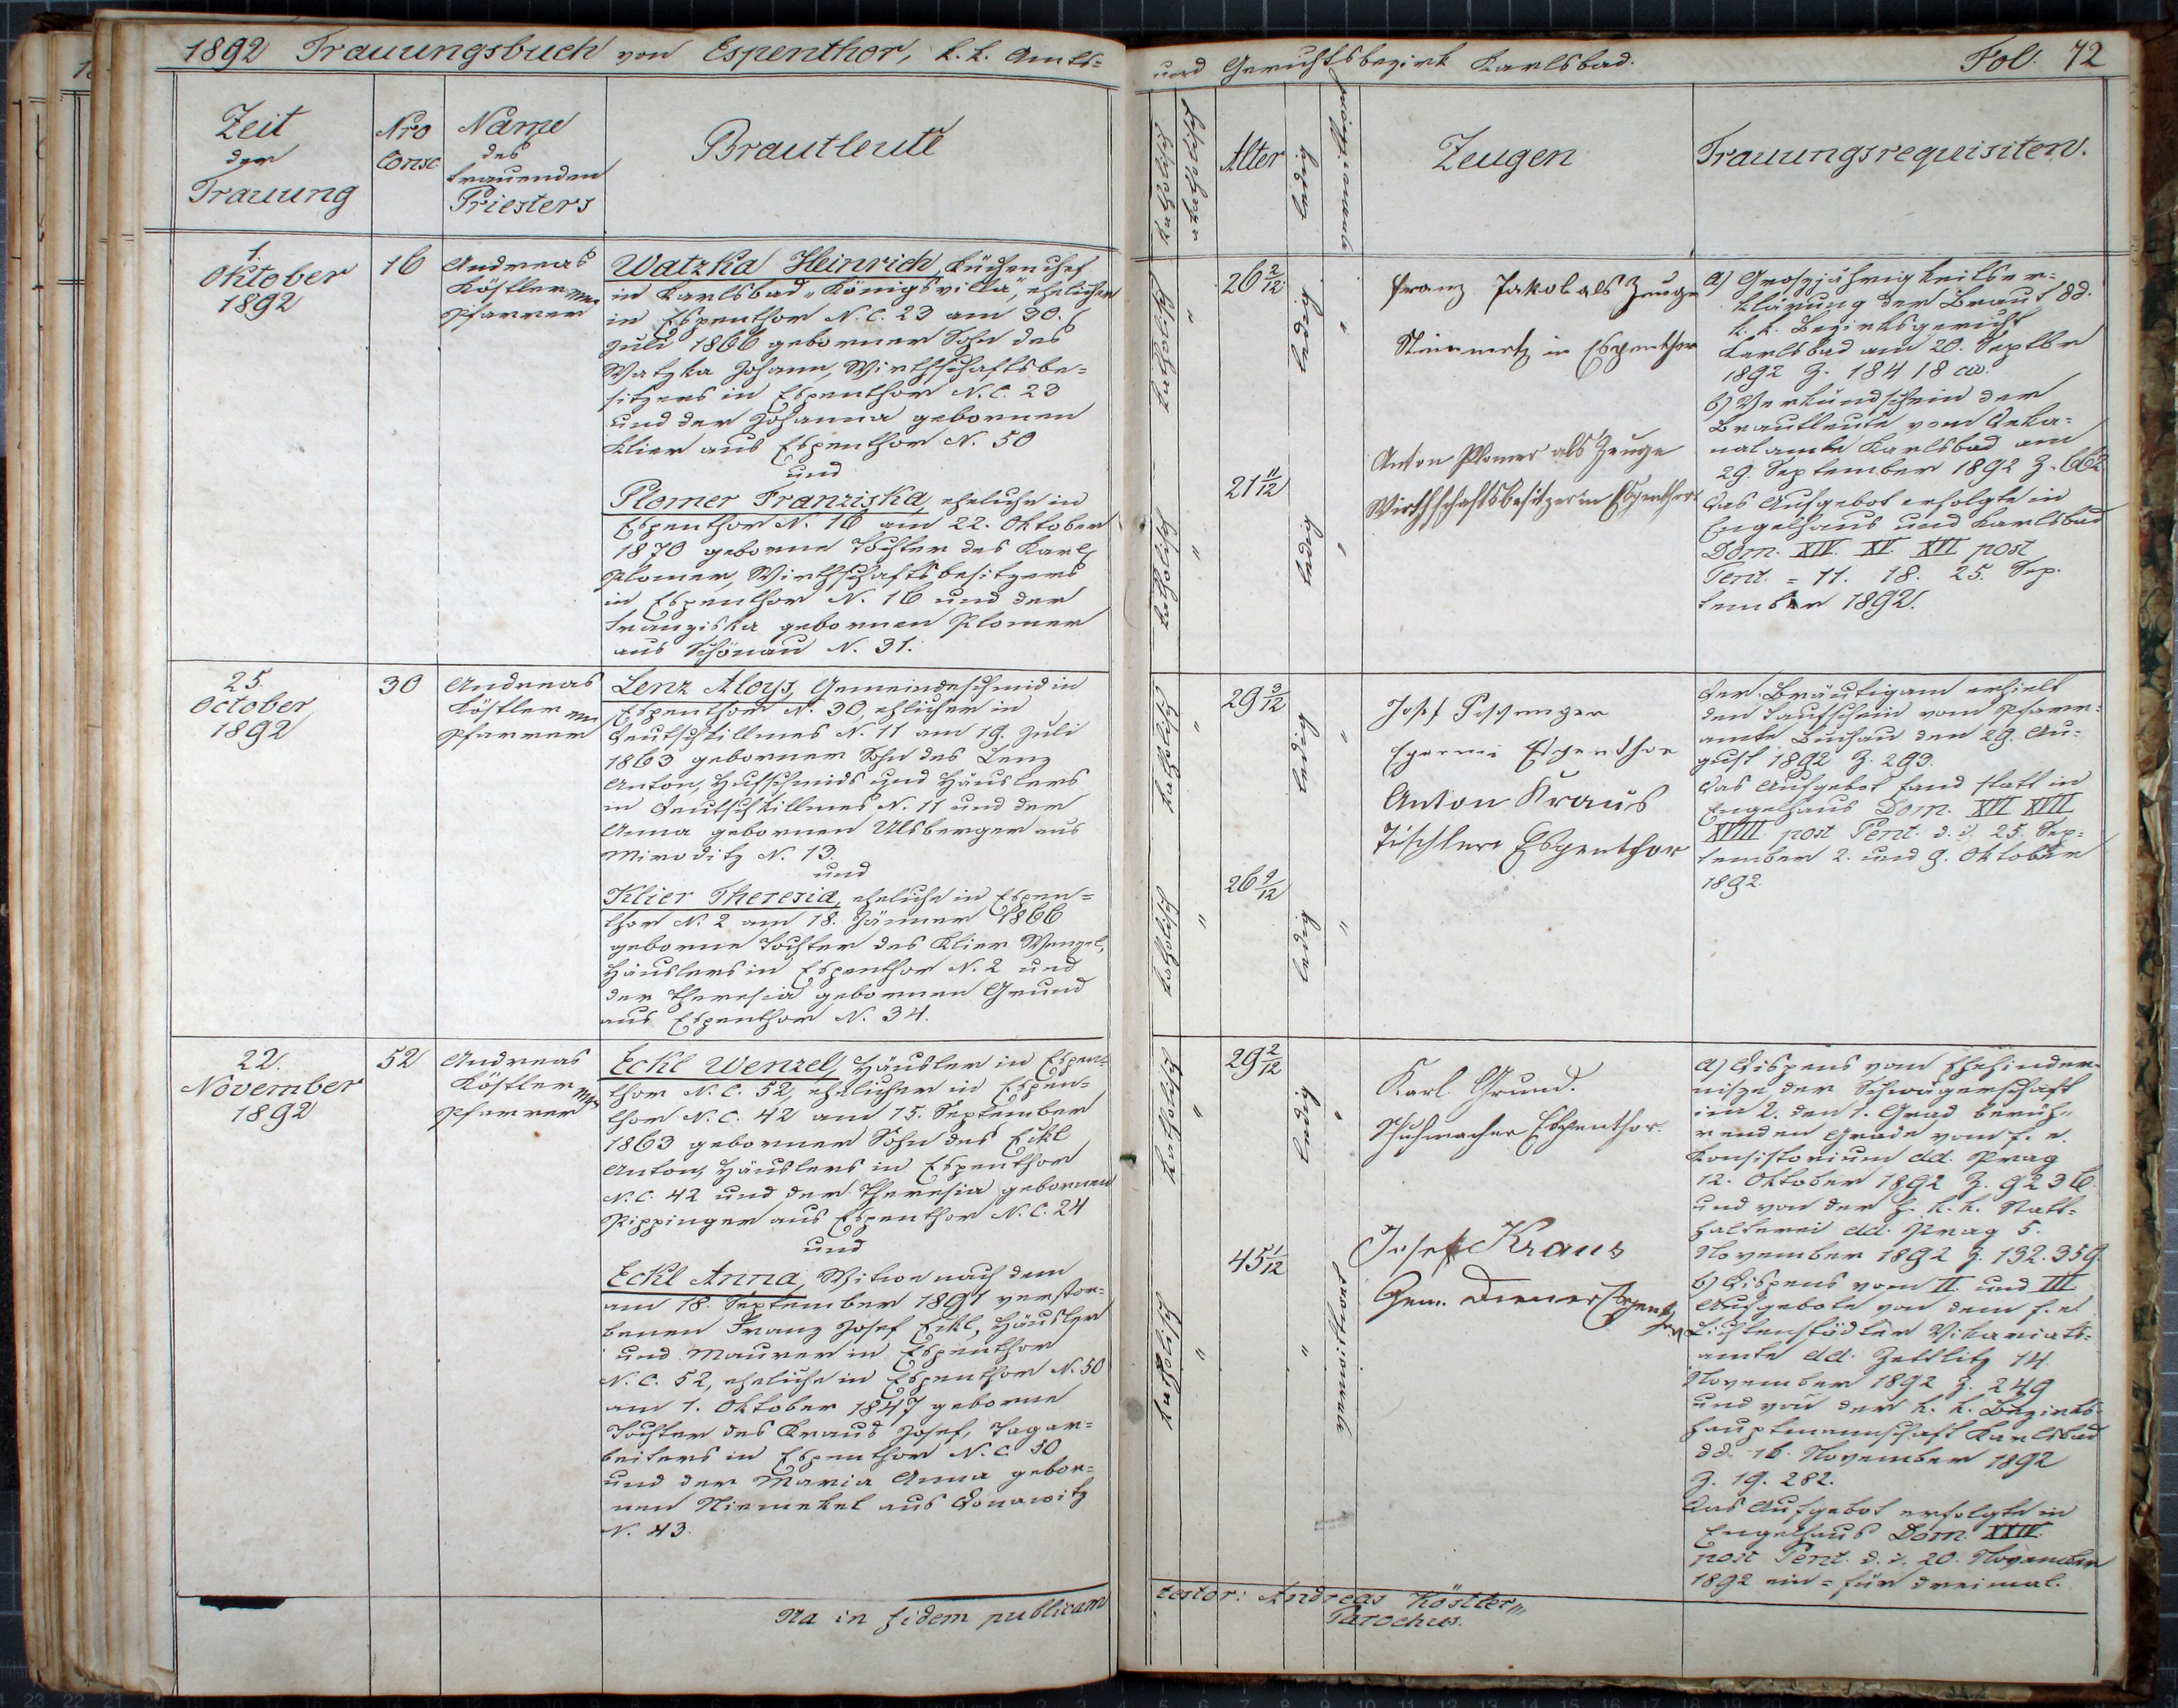 1892 Trauungsbuch von Espenthor, k. k. Amts=
und Gerichtsbezirk Karlsbad.
Fol. 72
Zeit
der
Trauung
Nro
Consc.
Name
des
trauenden
Priesters
Brautleute
katholisch
Alter
ledig
Zeugen
Trauungsrequisiten.
1.
Oktober
1892
16
Andreas
Köstler
Pfarrer
Watzka Heinrich, Küchenchef
in Karlsbad „Königsvilla", ehelicher
in Espenthor N.C. 23 am 30.
Juli 1866 geborner Sohn des
Watzka Johann, Wirthschaftsbe=
sitzers in Espenthor N.C. 23
und der Johanna gebornen
Klier aus Espenthor N. 50
und
Plomer Franziska, eheliche in
Espenthor N. 16 am 22. Oktober
1870 geborne Tochter des Karl
Plomer, Wirthschaftsbesitzers
in Espenthor N. 16 und der
Franziska gebornen Plomer
aus Schönau N. 31.
katholisch
"
26 2/12
ledig
"
katholisch
"
21 11/12
ledig
"
Franz Jakob als Zeuge
Steinmetz in Espenthor
Anton Plomer als Zeuge
Wirthschaftsbesitzer in Espenthor
a) Grosjährigkeitser=
klärung der Braut dd.
k. k. Bezirksgericht
Karlsbad am 20. Septbr
1892 Z. 18418 civ.
b) Verkündschein der
Brautleute vom Deka=
natamte Karlsbad am
29. September 1892 Z. 662
Das Aufgebot erfolgte in
Engelhaus und Karlsbad
Dom. XIV. XV. XVI post
Pent. = 11. 18. 25. Sep.
tember 1892.
25.
October
1892
30
Andreas
Köstler
Pfarrer
Lenz Aloys, Gemeindeschmid in
Espenthor N. 30, ehlicher in
Deutschkillmes N. 11 am 19. Juli
1863 geborner Sohn des Lenz
Anton, Hufschmids und Häuslers
in Deutschkillmes N. 11 und der
Anna gebornen Ulsberger aus
Miroditz N. 13.
und
Klier Theresia, eheliche in Espen=
thor N. 2 am 18. Jänner 1866
geborne Tochter des Klier Wenzel,
Häuslers in Espenthor N. 2 und
der Theresia gebornen Grund
aus Espenthor N. 34.
katholisch
"
29 3/12
ledig
"
katholisch
"
26 9/12
ledig
"
Josef
Espenthor
Anton Kraus
Tischler Espenthor
Der Bräutigam erhielt
den Taufschein vom Pfarr=
amte Buchau den 29. Au=
gust 1892 Z. 293.
Das Aufgebot fand statt in
Engelhaus Dom. XVI XVII
XVIII post Pent. d. i. 25. Sep=
tember 2. und 9. Oktober
1892.
22.
November
1892
52
Andreas
Köstler
Pfarrer
Eckl Wenzel, Häusler in Espen=
thor N.C. 52, ehelicher in Espen=
thor N.C. 42 am 15. September
1863 geborner Sohn des Eckl
Anton, Häuslers in Espenthor
N.C. 42 und der Theresia gebornen
Pippinger aus Espenthor N.C. 24
und
Eckl Anna, Witwe nach dem
am 18. September 1891 verstor=
benen Franz Josef Eckl, Häusler
und Maurer in Espenthor
N.C. 52, eheliche in Espenthor N. 50
am 1. Oktober 1847 geborne
Tochter des Kraus Josef, Tagar=
beiters in Espenthor N.C. 50
und der Maria Anna gebor=
nen Niemetzel aus Donawitz
N. 43.
katholisch
"
29 2/12
ledig
"
katholisch
"
45 1/12
"
verwittwet
Karl Grund.
Schuhmacher Espenthor.
Josef Kraus
Gem. Diener Espenthor
a) Dispens vom Ehehinder=
nisse der Schwägerschaft
im 2. den 1. Grad berüh=
renden Grade vom f. e.
Konsistorium dd. Prag
12. Oktober 1892 Z. 9236
und von der h. k. k. Statt=
halterei dd. Prag 5.
November 1892 Z. 132.359.
b) Dispens vom II. und III
Aufgebote von dem f. e.
Lichtenstädter Vikariats=
amte dd. Zettlitz 14.
November 1892 Z. 249
und von der k. k. Bezirks=
hauptmannschaft Karlsbad
dd. 16. November 1892
Z. 19.282.
Das Aufgebot erfolgte in
Engelhaus Dom. XXIV.
post Pent. d. i. 20. November
1892 ein= für dreimal.
Ita in fidem publicam
testor: Andreas Köstler
Parochus.